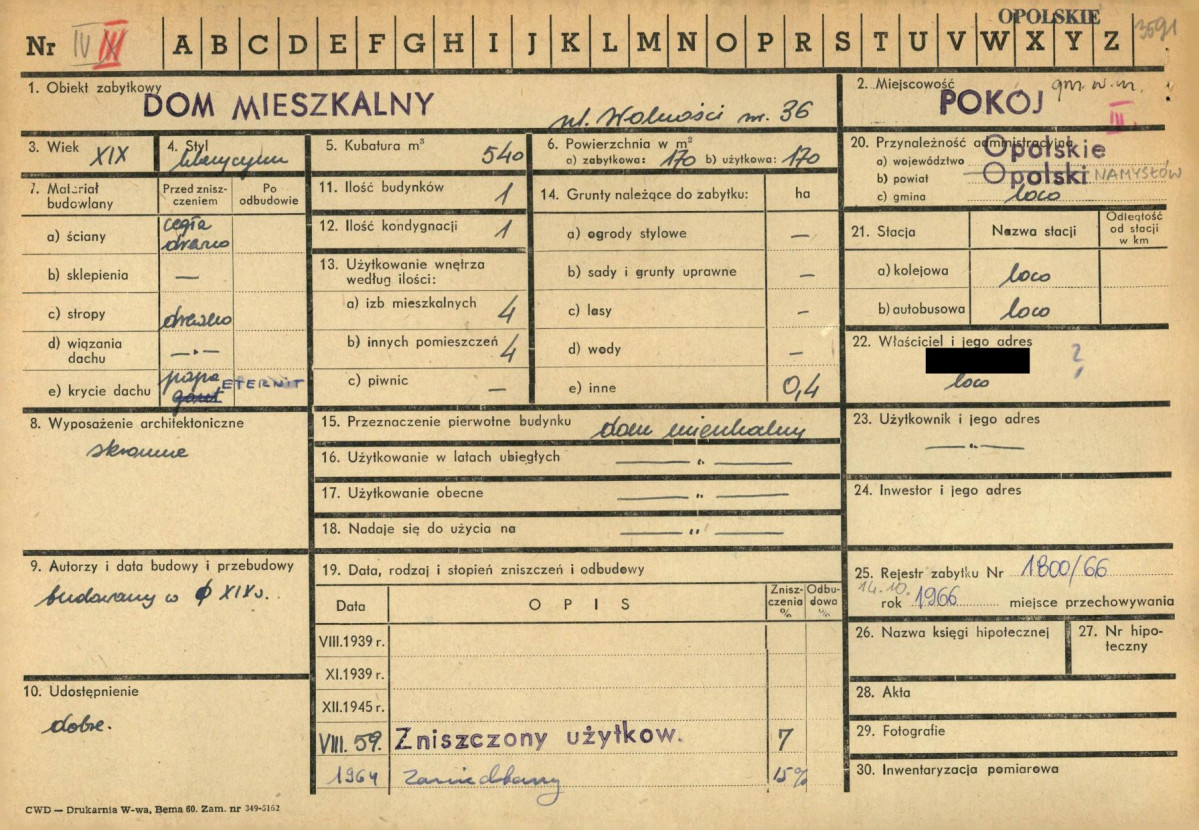 OPOLSKIE
Nr IV III A B C D E F G H I J K L M N O P R S T U V W X Y Z 3591
1. Obiekt zabytkowy
DOM MIESZKALNY
ul. Wolności nr. 36
2. Miejscowość gm. w. m.
POKÓJ
IV
3. Wiek XIX
4. Styl
5. Kubatura m³ 540
6. Powierzchnia w m²
a) zabytkowa: 170 b) użytkowa: 170
20. Przynależność administracyjna
a) województwo Opolskie
b) powiat Opolski NAMYSŁÓW
c) gmina loco
7. Materiał budowlany
Przed zniszczeniem
Po odbudowie
a) ściany cegła drewno
b) sklepienia —
c) stropy drewno
d) wiązania dachu —„—
e) krycie dachu papa gont ETERNIT
11. Ilość budynków 1
12. Ilość kondygnacji 1
13. Użytkowanie wnętrza
według ilości:
a) izb mieszkalnych 4
b) innych pomieszczeń 4
c) piwnic —
14. Grunty należące do zabytku: ha
a) ogrody stylowe —
b) sady i grunty uprawne —
c) lasy —
d) wody —
e) inne 0,4
21. Stacja
Nazwa stacji
Odległość od stacji w km
a) kolejowa loco
b) autobusowa loco
22. Właściciel i jego adres
?
loco
8. Wyposażenie architektoniczne
skromne
15. Przeznaczenie pierwotne budynku dom mieszkalny
16. Użytkowanie w latach ubiegłych —„—
17. Użytkowanie obecne —„—
18. Nadaje się do użycia na —„—
23. Użytkownik i jego adres
—„—
24. Inwestor i jego adres
9. Autorzy i data budowy i przebudowy
budowany w XIX w.
10. Udostępnienie
dobre.
19. Data, rodzaj i stopień zniszczeń i odbudowy
Data
OPIS
Zniszczenia %
Odbudowa %
VIII.1939 r.
XI.1939 r.
XII.1945 r.
VIII. 59. Zniszczony użytkow. 7
1964 zaniedbany 15%
25. Rejestr zabytku Nr 1800/66
14.10.
rok 1966 miejsce przechowywania
26. Nazwa księgi hipotecznej
27. Nr hipoteczny
28. Akta
29. Fotografie
30. Inwentaryzacja pomiarowa
CWD — Drukarnia W-wa, Bema 60. Zam. nr 349-5162